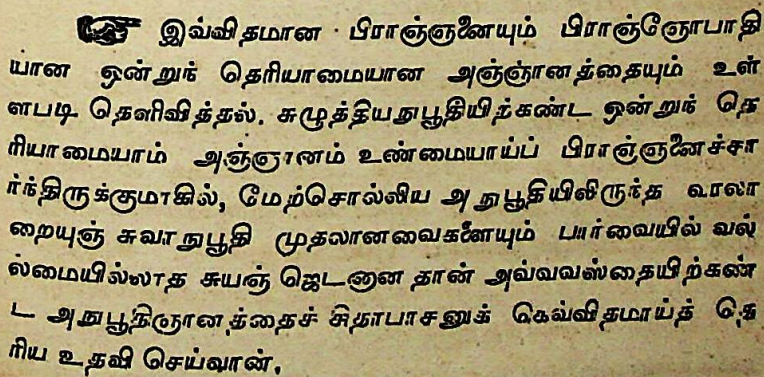 ☞ இவ்விதமான பிராஞ்ஞனையும் பிராஞ்ஞோபாதி
யான ஒன்றுந் தெரியாமையான அஞ்ஞானத்தையும் உள்
ளபடி தெளிவித்தல். சுழுத்தியநுபூதியிற்கண்ட ஒன்றுந் தெ
ரியாமையாம் அஞ்ஞானம் உண்மையாய்ப் பிராஞ்ஞனைச்சா
ர்ந்திருக்குமாகில், மேற்சொல்லிய அநுபூதியிலிருந்த வரலா
றையுஞ் சுவாநுபூதி முதலானவைகளையும் பார்வையில் வல்
ல்மையில்லாத சுயஞ் ஜெடனான தான் அவ்வவஸ்தையிற்கண்
ட அநுபூதிஞானத்தைச் சிதாபாசனுக் கெவ்விதமாய்த் தெ
ரிய உதவி செய்வான்.